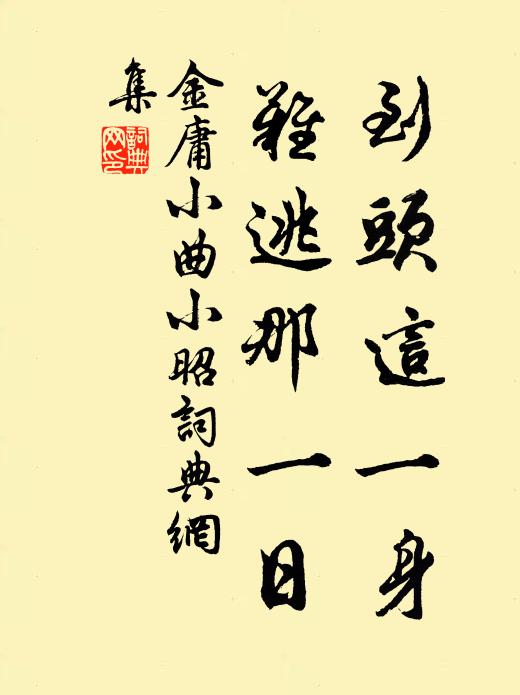 到頭這一身
難逃那一日
金庸小曲小昭詞典網
集
詞典
网印